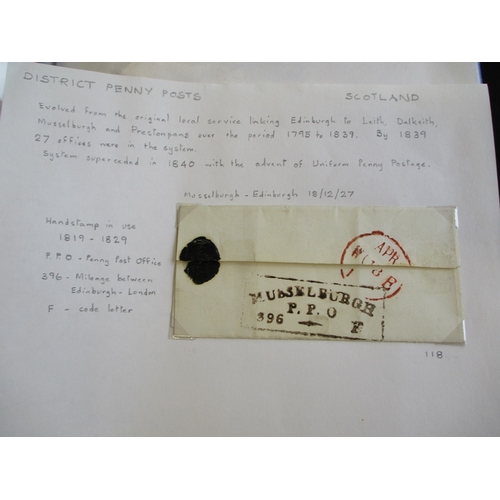 DISTRICT PENNY POSTS SCOTLAND
Evolved from the original local service linking Edinburgh to Leith, Dalkeith,
Musselburgh and Prestonpans over the period 1795 to 1839. By 1839
27 offices were in the system.
System superceded in 1840 with the advent of Uniform Penny Postage.
Musselburgh - Edinburgh 18/12/27
Handstamp in use
1819 - 1829
P.P.O - Penny Post Office
396 - Mileage between
Edinburgh - London
F - code letter
APR
MUSSELBURGH
P.P.O
396 F
118